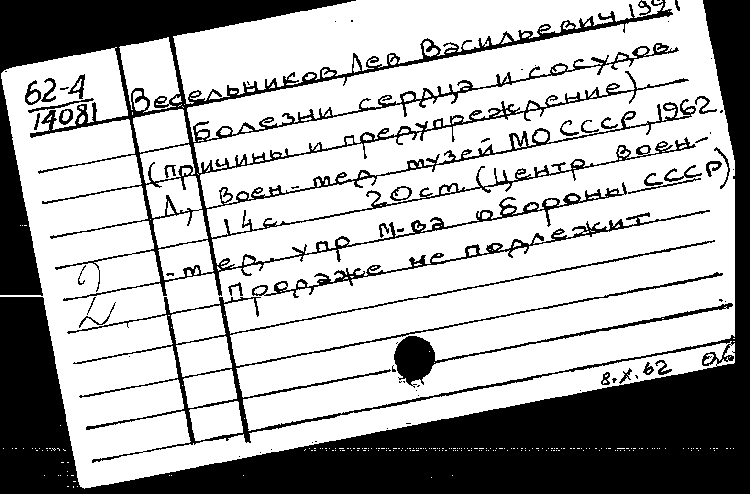 62-4
14081
Весельников, Лев Васильевич, 192
Болезни сердца и сосудов
(причины и предупреждение).
Л., воен-мед музей МО СССР, 1962.
14с. 20см. (Центр. воен-
-мед. упр м-ва обороны СССР)
Продаже не подлежит.
2
8.X.62